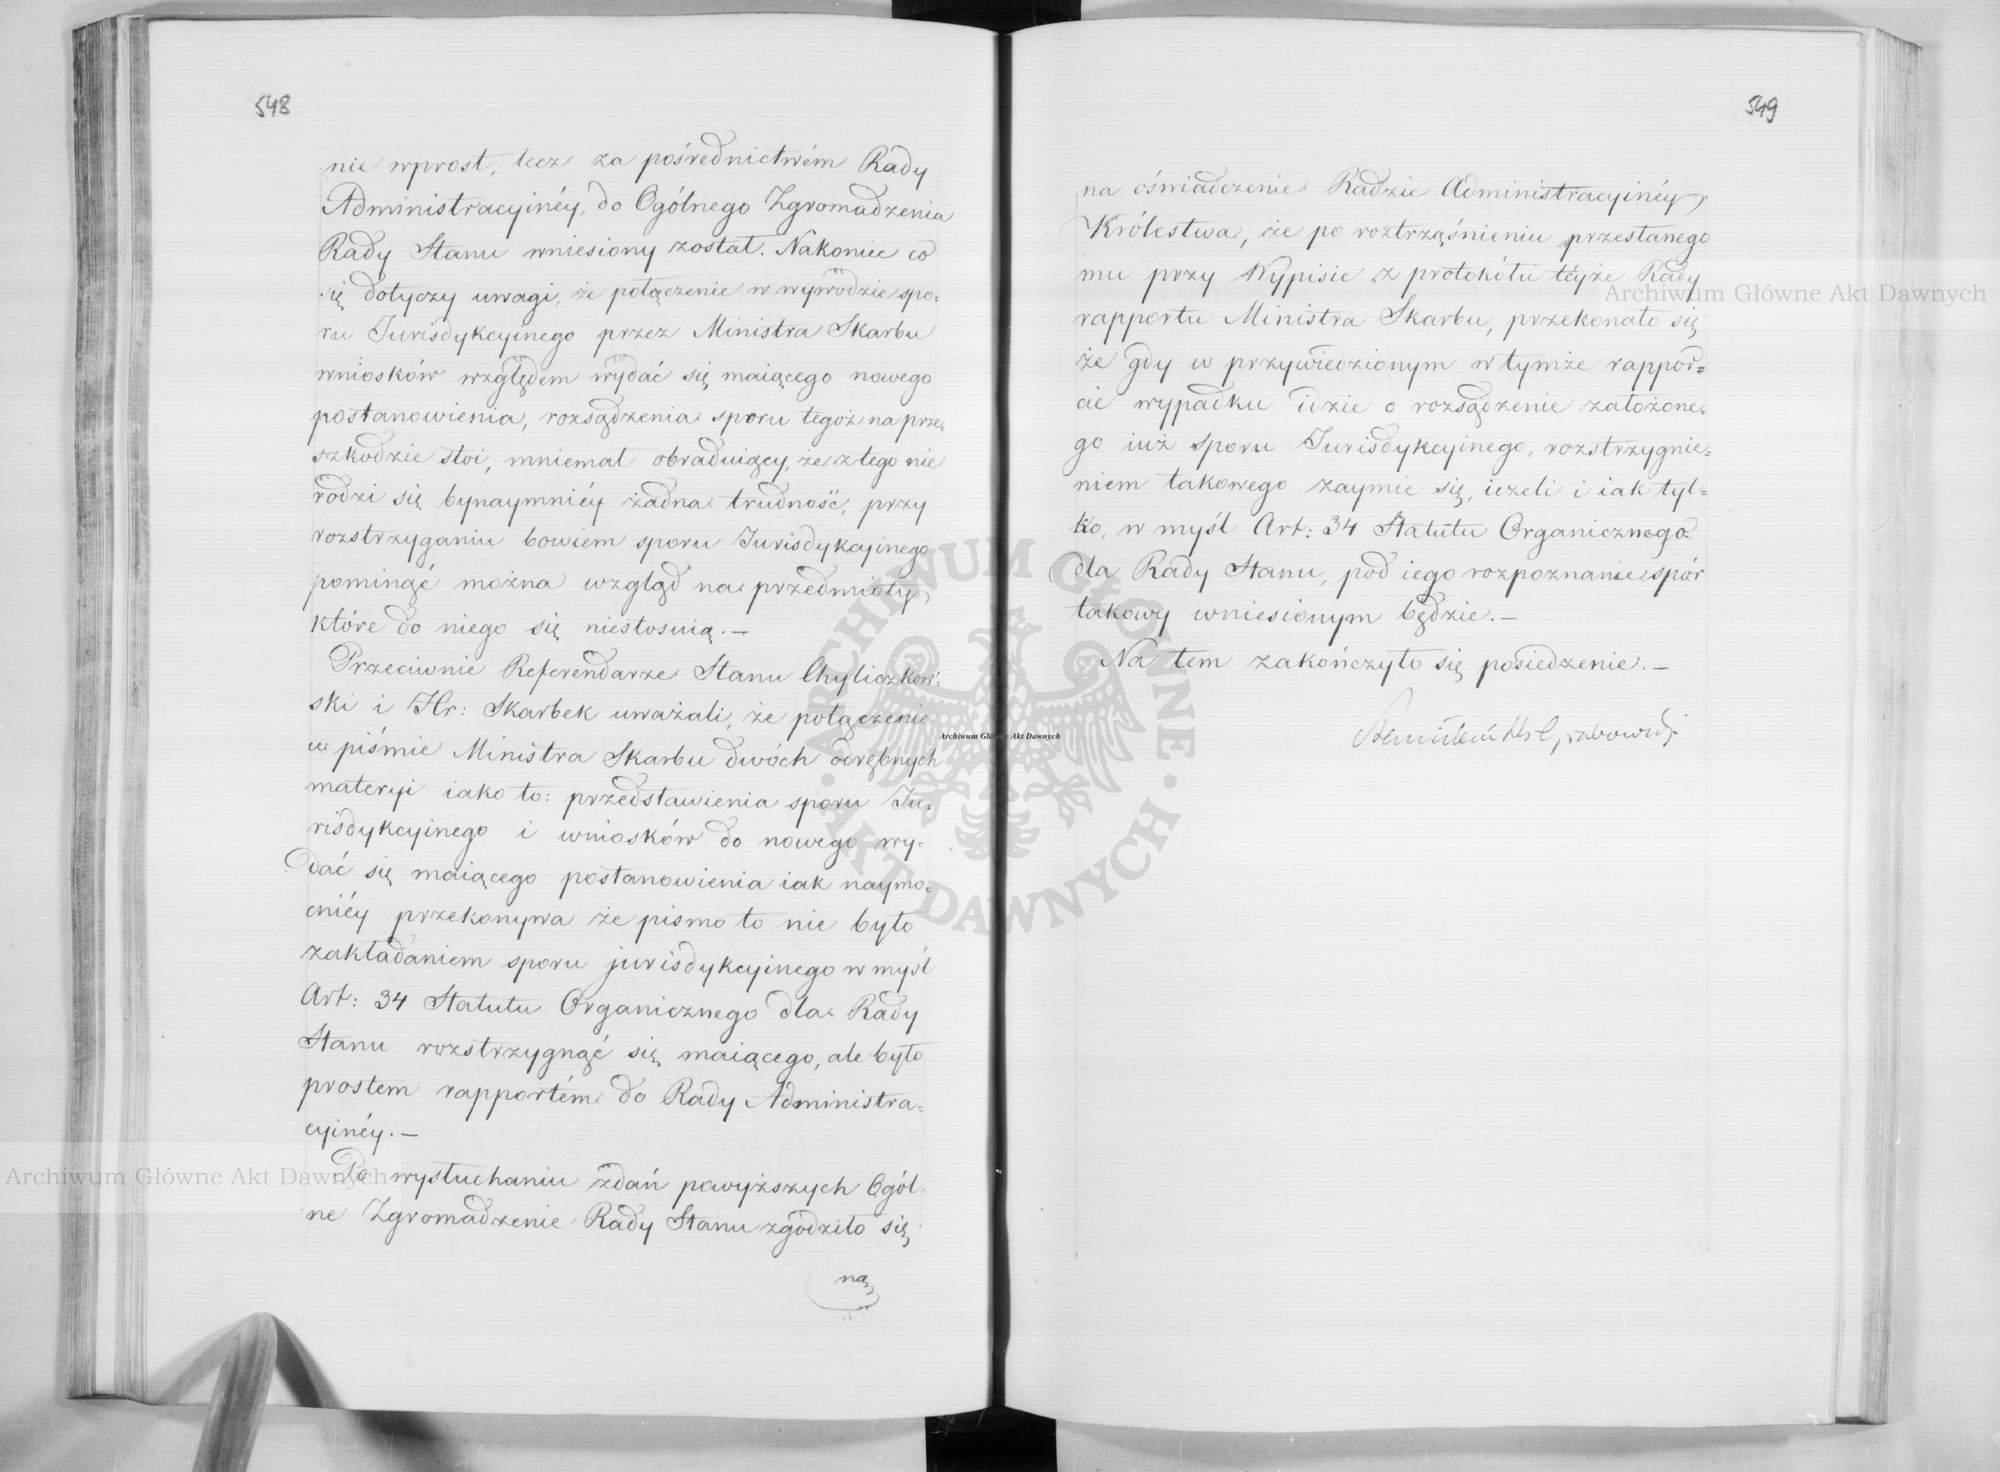 548
nie wprost, lecz za pośrednictwém Rady
Administracyinéy, do Ogólnego Zgromadzenia
Rady Stanu wniesiony został. Nakoniec co
się dotyczy uwagi, że połączenie w wywodzie spo=
ru Jurisdykcyinego przez Ministra Skarbu
wniosków względem wydać się maiącego nowego
postanowienia, rozsądzenia sporu tegoż na prze=
szkodzie stoi, mniemał obraduiący, że z tego nie
rodzi się bynaymniéy żadna trudność, przy
rozstrzyganiu bowiem sporu Jurisdykcyinego
pominąć można wzgląd na przedmioty,
które do niego się niestosuią.—
Przeciwnie Referendarze Stanu Chyliczkow=
ski i Hr: Skarbek uważali, że połączenie
w piśmie Ministra Skarbu dwóch odrębnych
materyi iako to: przedstawienia sporu Ju=
risdykcyinego i wniosków do nowego wy=
dać się maiącego postanowienia iak naymo=
cniéy przekonywa że pismo to nie było
zakładaniem sporu jurisdykcyinego w myśl
Art: 34 Statutu Organicznego dla Rady
Stanu rozstrzygnąć się maiącego, ale było
prostem rapportém do Rady Administra=
cyinéy.—
Po wysłuchaniu zdań powyższych Ogól=
ne Zgromadzenie Rady Stanu zgodziło się
na
549
na oświadczenie Radzie Administracyinéy
Królestwa, że po roztrząśnieniu przesłanego
mu przy Wypisie z protokółu téyże Rady
rapportu Ministra Skarbu, przekonało się
że gdy w przywiedzionym w tymże rappor=
cie wypadku idzie o rozsądzenie założone=
go iuż sporu Jurisdykcyinego, rozstrzygnie=
niem takowego zaymie się, ieżeli i iak tyl=
ko, w myśl Art: 34 Statutu Organicznego
dla Rady Stanu, pod iego rozpoznanie spór
takowy wniesionym będzie.—
Na tem zakończyło się posiedzenie.—
Archiwum Główne Akt Dawnych
Archiwum Główne Akt Dawnych
Archiwum Główne Akt Dawnych
ARCHIWUM GŁÓWNE · AKT DAWNYCH ·